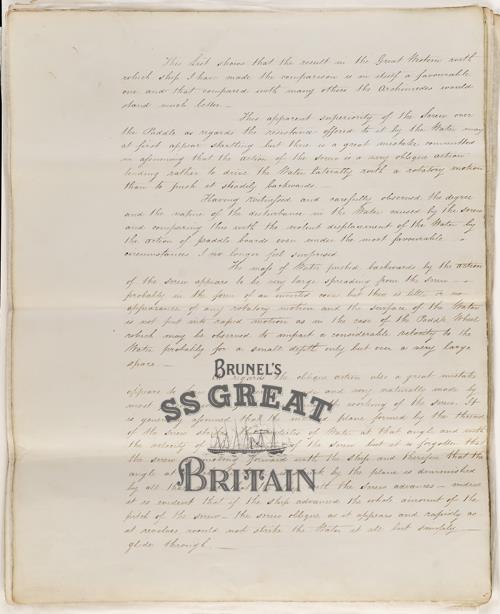 This List shows that the result in the Great Western with
which ship I have made the comparison is in itself a favourable
one and that compared with many others the Archimedes would
stand much better. —
This apparent superiority of the Screw over
the Paddle as regards the resistance offered to it by the Water may
at first appear startling but there is a great mistake committed
in assuming that the action of the Screw is a very oblique action
tending rather to drive the Water laterally with a rotatory motion
than to push it steadily backwards. —
Having witnessed and carefully observed the degree
and the nature of the disturbance in the Water caused by the Screw
and comparing this with the violent displacement of the Water by
the action of paddle boards even under the most favourable
circumstances I no longer feel surprised
The mass of Water pushed backwards by the action
of the screw appears to be very large spreading from the screw
probably in the form of an inverted cone but there is little or no
appearance of any rotatory motion and the surface of the Water
is not put into rapid motion as in the case of the Paddle Wheel
which may be observed to impart a considerable velocity to the
Water probably for a small depth only but over a very large
space —
regards the oblique action also a great mistake
appears to be and very naturally made by
most working of the screw. It
is generally assumed that the inclined plane formed by the thread
of the Screw strikes the particles of Water at that angle and with
the velocity of of the screw but it is forgotten that
the screw is moving forward with the ship and therefore that the
angle at by the plane is diminished
by all the with the Screw advances — indeed
it is evident that if the ship advanced the whole amount of the
pitch of the screw — the screw oblique as it appears and rapidly as
it revolves would not strike the Water at all but simply
glide through. —
BRUNEL'S
SS GREAT
BRITAIN